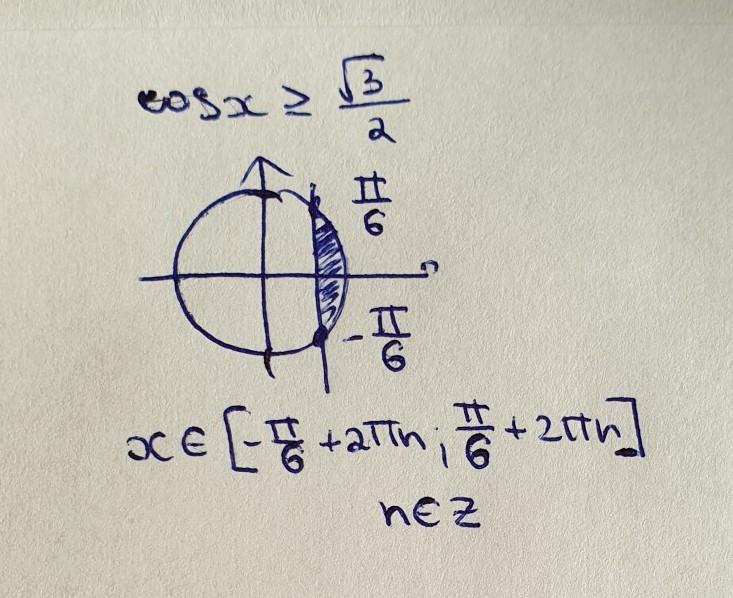 cos x ≥ √3/2
π/6
-π/6
x ∈ [-π/6 + 2πn; π/6 + 2πn]
n ∈ Z